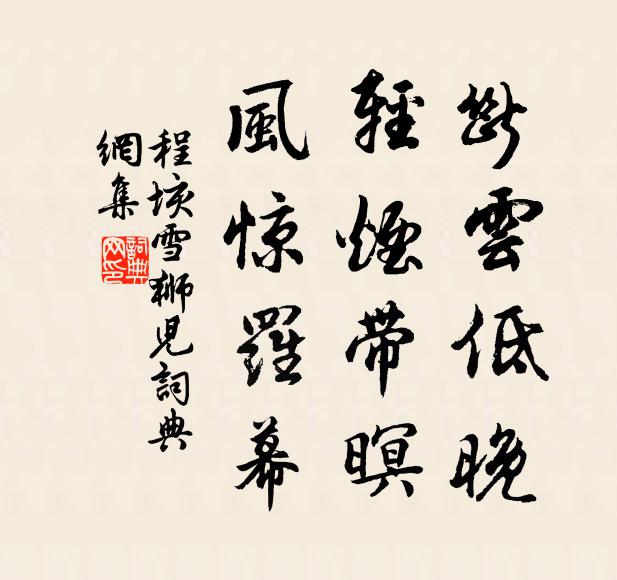 斷雲低晚
輕煙帶暝
風惊羅幕
程垓雪獅児詞典
網集
詞典
网印